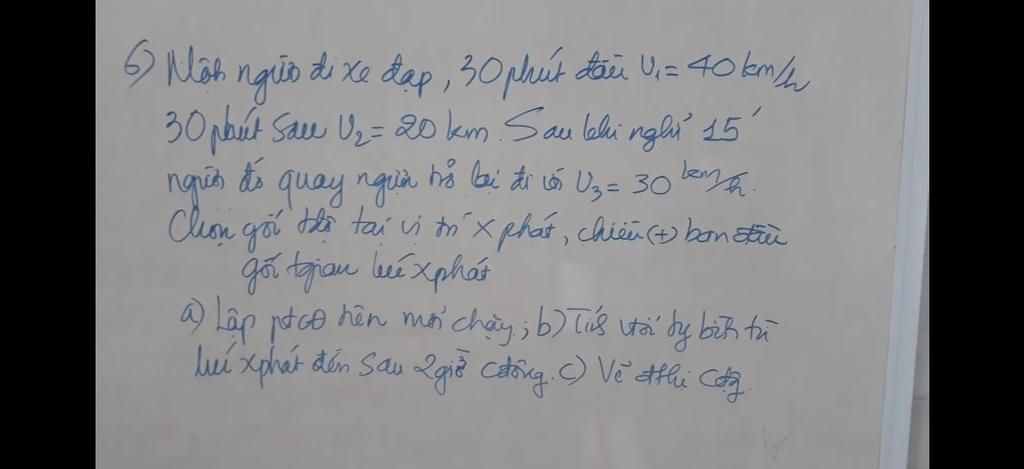 6) Một người đi xe đạp, 30 phút đầu V₁ = 40 km/h
30 phút sau V₂ = 20 km. Sau khi nghỉ 15'
người đó quay ngược trở lại đi với V₃ = 30 km/h.
Chọn gốc tại vị trí x phát, chiều (+) ban đầu
gốc tgian lúc x phát
a) Lập ptcđ trên mỗi chặng; b) Tính vtốc tb từ
lúc x phát đến sau 2 giờ cđộng. c) Vẽ đthị cđg